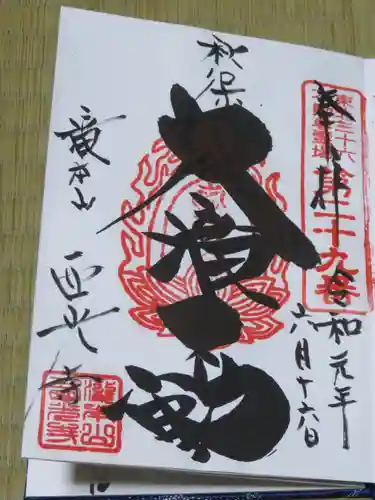 奉拝
東北三十六
不動尊霊場
第二十九番
令和元年
六月十六日
秋保
大滝不動
滝本山
西光寺
瀧本山
西光寺